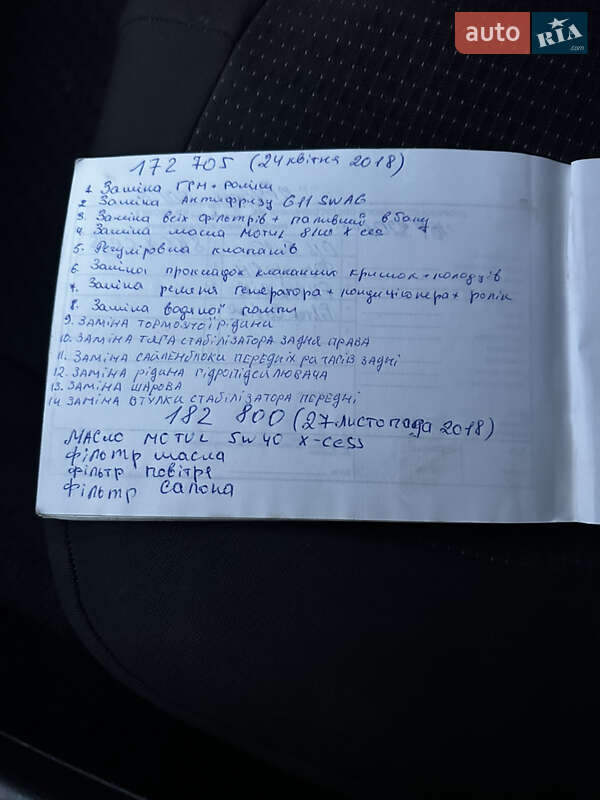 auto RIA.com
172 705 (24 квітня 2018)
1. Заміна ГРМ + роліки
2. Заміна Антифризу G11 SWAG
3. Заміна всіх фільтрів + паливний в баку
4. Заміна масла Motul 8100 X cess
5. Регуліровка клапанів
6. Заміна прокладок клапанних кришок + колодців
7. Заміна ременя генератора + кондиціонера + ролік
8. Заміна водяної помпи
9. ЗАМІНА ТОРМОЗНОЇ РІДИНИ
10. ЗАМІНА ТЯГА СТАБІЛІЗАТОРА ЗАДНЯ ПРАВА
11. ЗАМІНА САЙЛЕНБЛОКИ ПЕРЕДНІХ РИЧАГІВ ЗАДНІ
12. ЗАМІНА РІДИНА ГІДРОПІДСИЛЮВАЧА
13. ЗАМІНА ШАРОВА
14. ЗАМІНА ВТУЛКИ СТАБІЛІЗАТОРА ПЕРЕДНІ
182 800 (27 листопада 2018)
МАСЛО MOTUL 5W40 X-cess
фільтр масла
фільтр повітря
фільтр салона